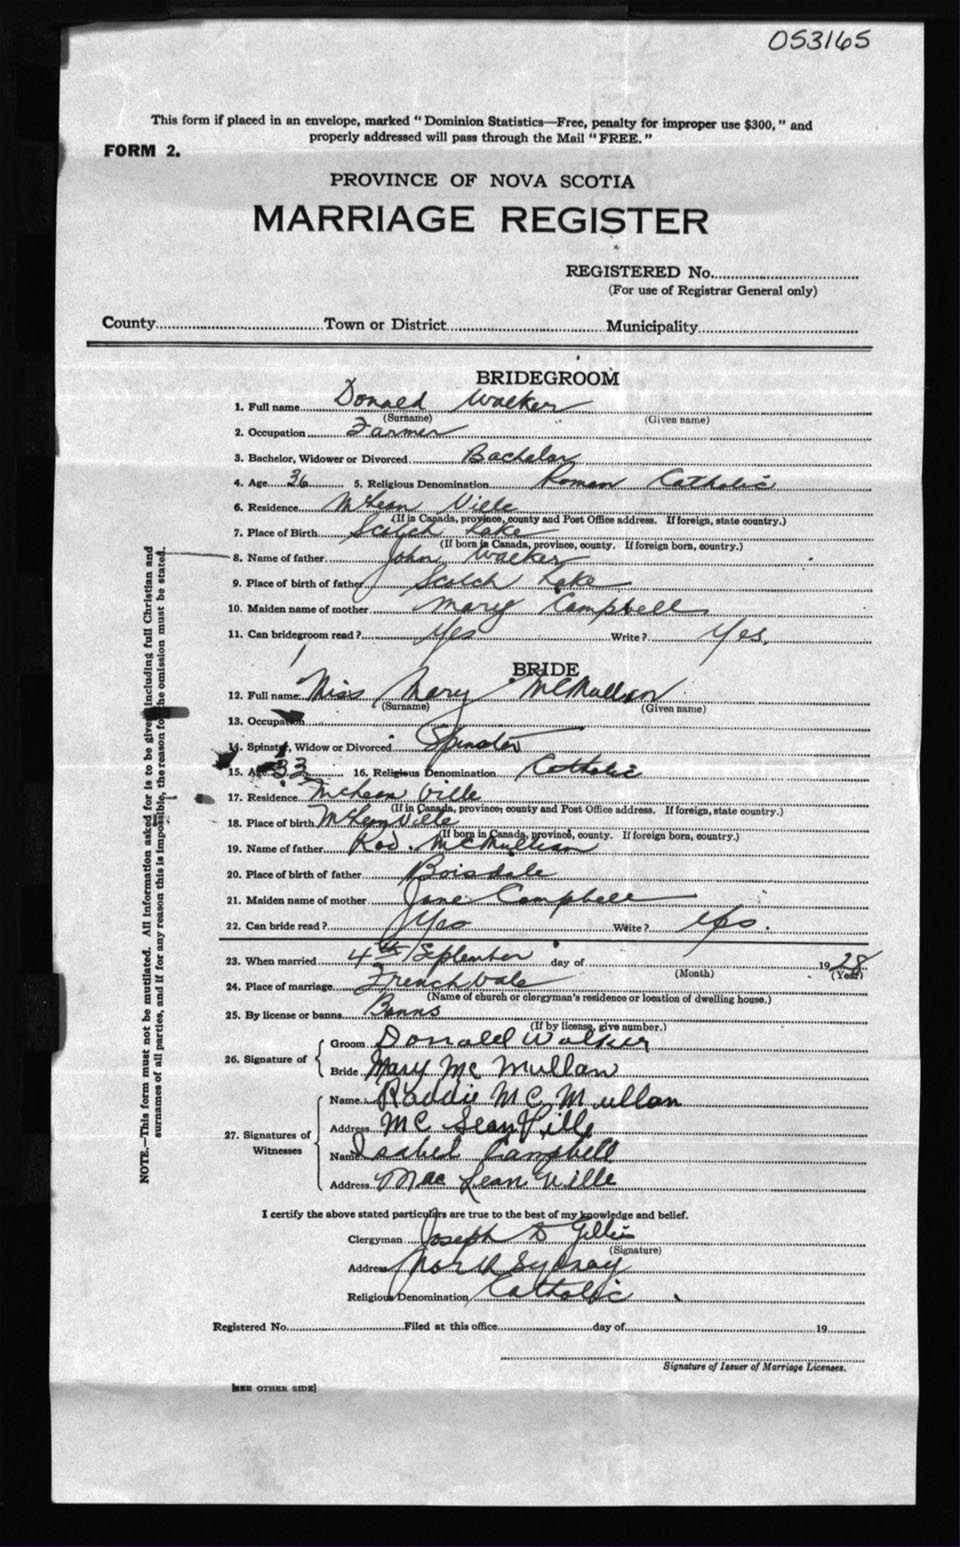 053165
This form if placed in an envelope, marked "Dominion Statistics—Free, penalty for improper use $300," and
properly addressed will pass through the Mail "FREE."
FORM 2.
PROVINCE OF NOVA SCOTIA
MARRIAGE REGISTER
REGISTERED No.
(For use of Registrar General only)
County Town or District Municipality
BRIDEGROOM
1. Full name Donald Walker
(Surname) (Given name)
2. Occupation Farmer
3. Bachelor, Widower or Divorced Bachelor
4. Age 36 5. Religious Denomination Roman Catholic
6. Residence McLean Ville
(If in Canada, province, county and Post Office address. If foreign, state country.)
7. Place of Birth Scotch Lake
(If born in Canada, province, county. If foreign born, country.)
8. Name of father John Walker
9. Place of birth of father Scotch Lake
10. Maiden name of mother Mary Campbell
11. Can bridegroom read? Yes Write? Yes.
BRIDE
12. Full name Miss Mary McMullan
(Surname) (Given name)
13. Occupation
14. Spinster, Widow or Divorced Spinster
15. Age 33 16. Religious Denomination Catholic
17. Residence McLean Ville
(If in Canada, province, county and Post Office address. If foreign, state country.)
18. Place of birth McLean Ville
(If born in Canada, province, county. If foreign born, country.)
19. Name of father Rod. McMullan
20. Place of birth of father Boisdale
21. Maiden name of mother Jane Campbell
22. Can bride read? Yes Write? Yes.
23. When married 4th September day of 1928
(Month) (Year)
24. Place of marriage Frenchvale
(Name of church or clergyman's residence or location of dwelling house.)
25. By license or banns Banns
(If by license, give number.)
26. Signature of
Groom Donald Walker
Bride Mary Mc Mullan
27. Signatures of Witnesses
Name Roddie Mc Mullan
Address Mc Lean Ville
Name Isabel Campbell
Address Mac Lean Ville
I certify the above stated particulars are true to the best of my knowledge and belief.
Clergyman Joseph D Gillis
(Signature)
Address North Sydney
Religious Denomination Catholic
Registered No. Filed at this office day of 19
Signature of Issuer of Marriage Licenses.
[SEE OTHER SIDE]
NOTE.—This form must not be mutilated. All information asked for is to be given, including full Christian and
surnames of all parties, and if for any reason this is impossible, the reason for the omission must be stated.